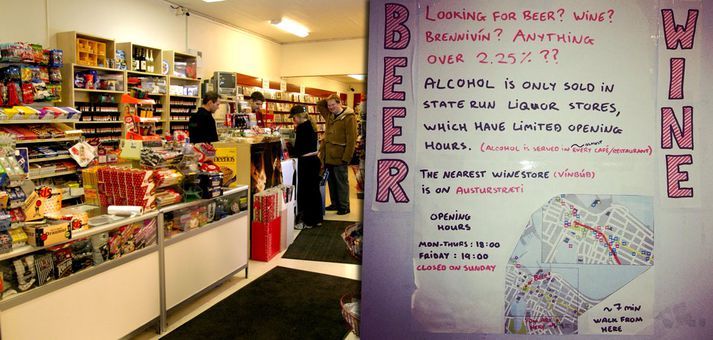 BEER
WINE
LOOKING FOR BEER? WINE?
BRENNIVÍN? ANYTHING
OVER 2.25% ??
ALCOHOL IS ONLY SOLD IN
STATE RUN LIQUOR STORES,
WHICH HAVE LIMITED OPENING
HOURS. (ALCOHOL IS SERVED IN EVERY CAFÉ/RESTAURANT)
THE NEAREST WINESTORE (VÍNBÚÐ)
IS ON AUSTURSTRÆTI
OPENING
HOURS
MON-THURS: 18:00
FRIDAY : 19:00
CLOSED ON SUNDAY
YOU ARE
HERE
~ 7 MIN
WALK FROM
HERE